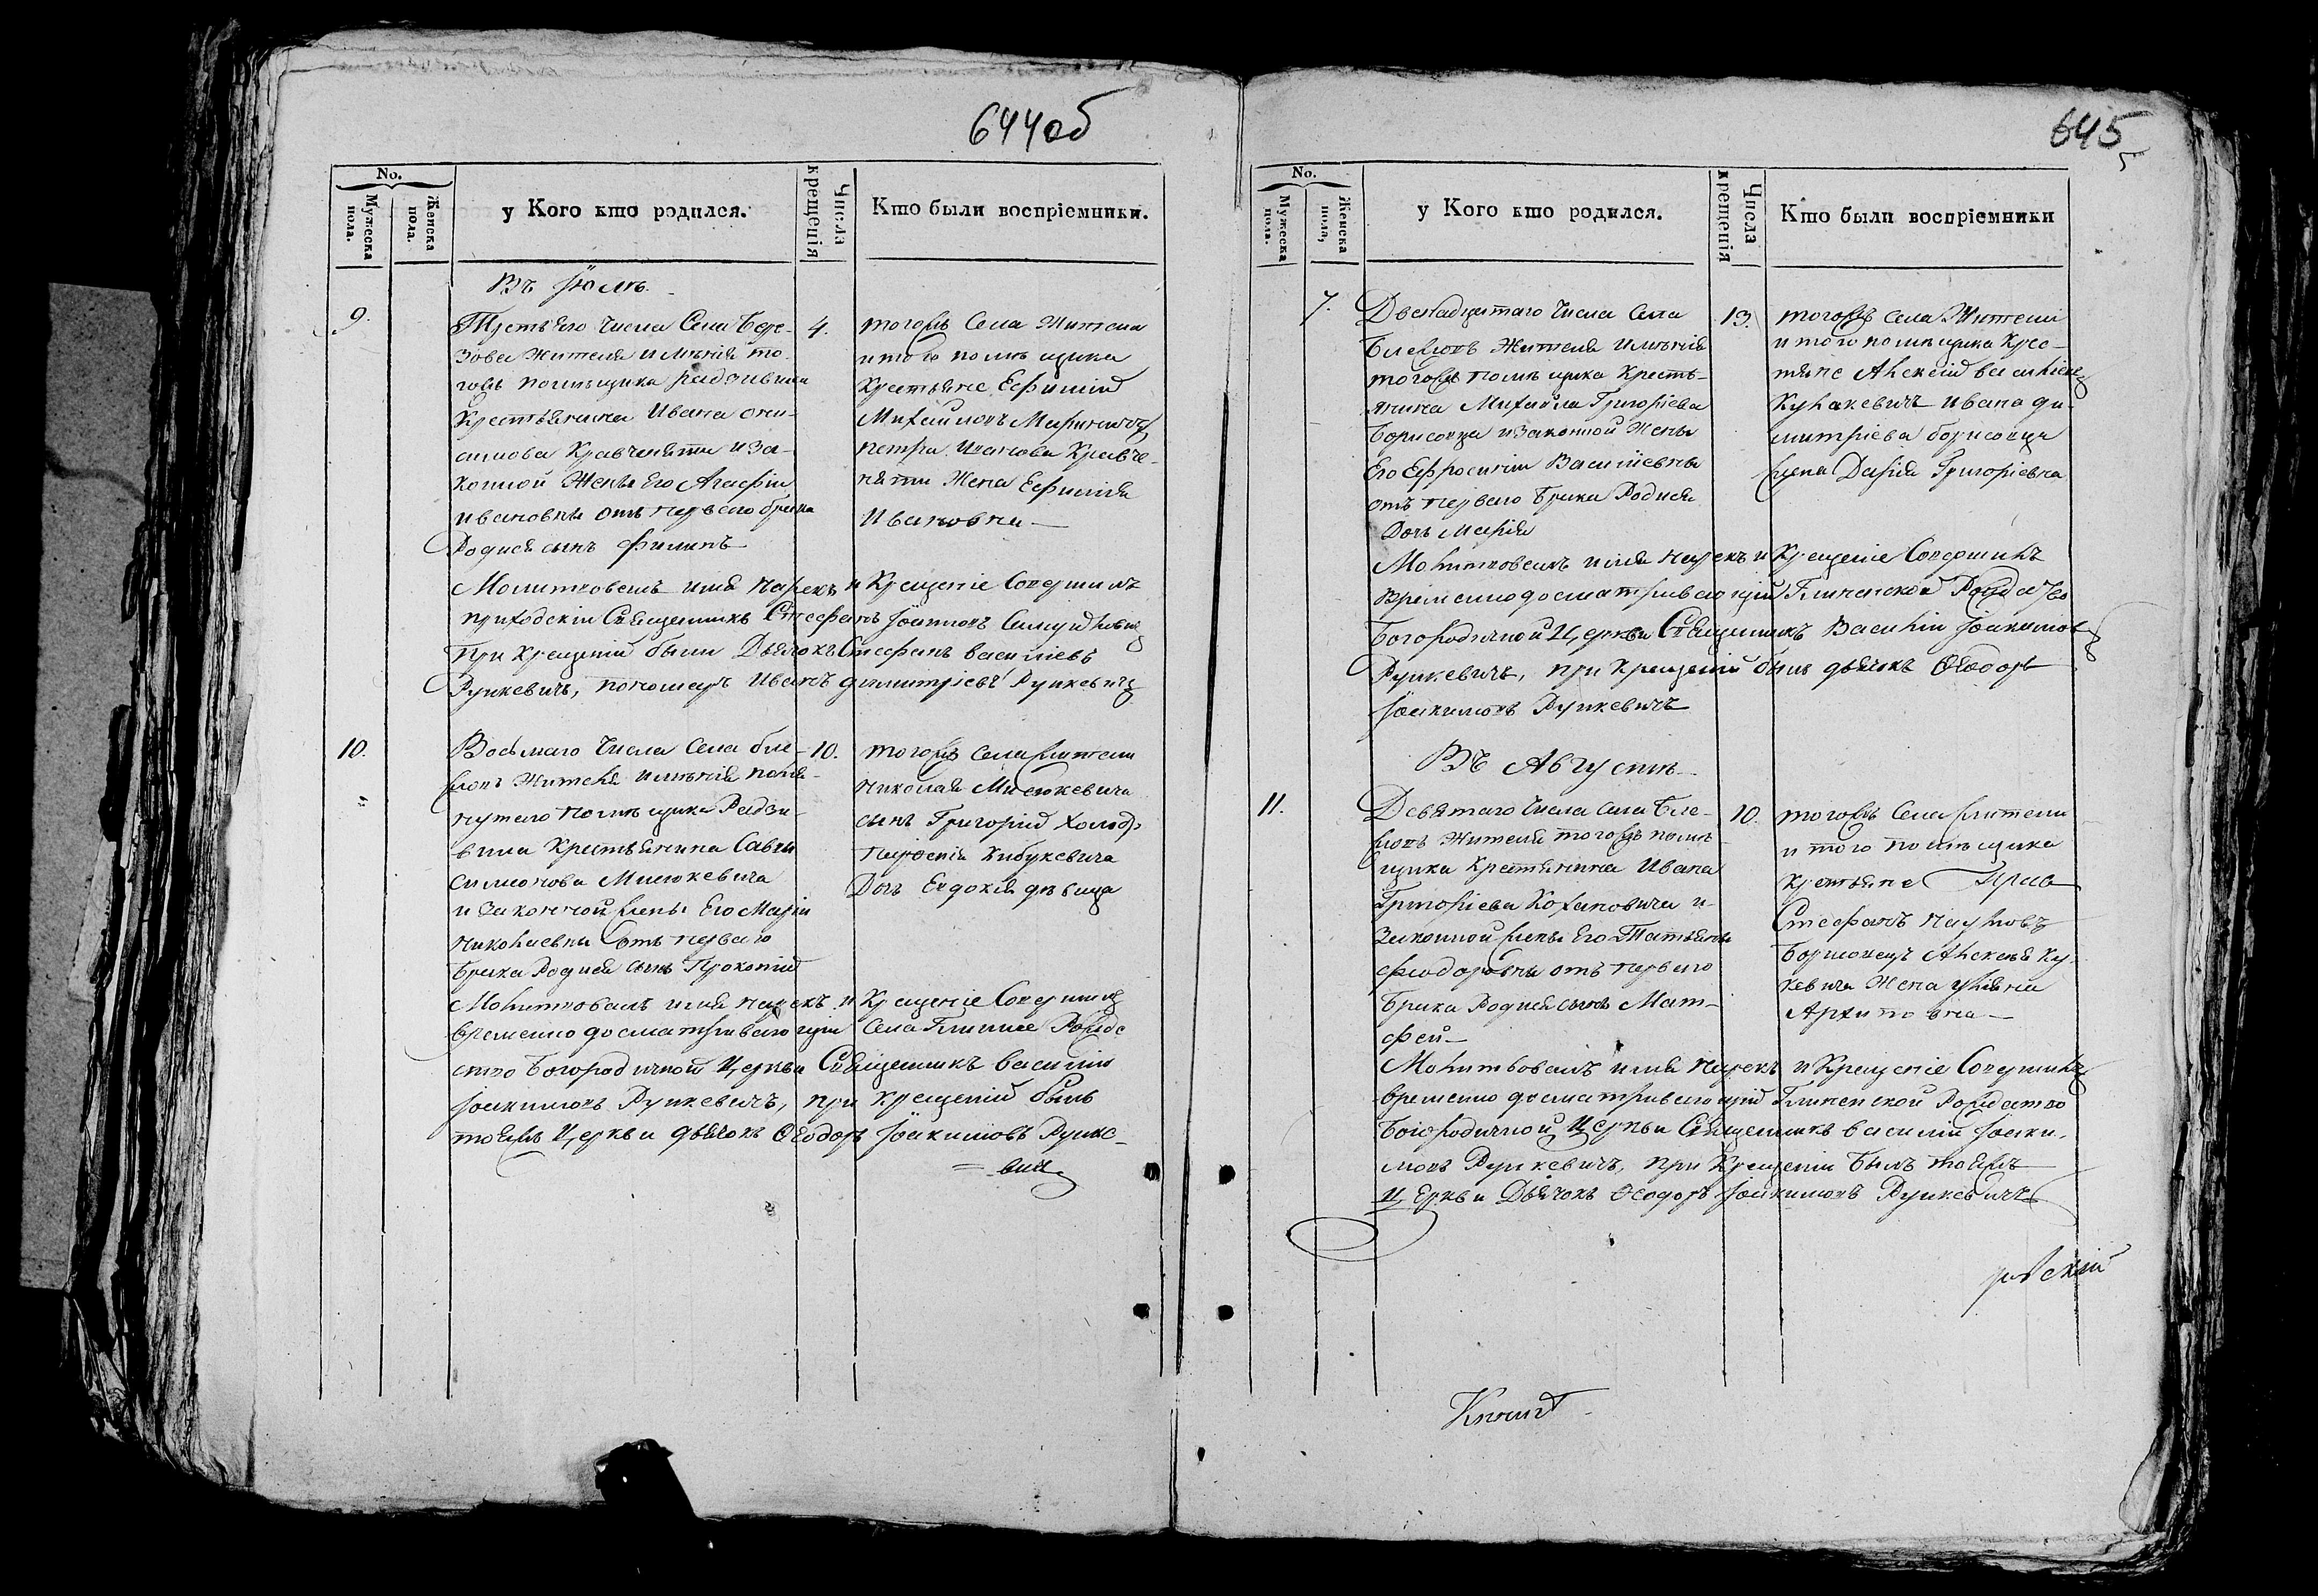 644об
No.
Мужеска пола.
Женска пола.
у Кого кто родился.
Числа крещенія
Кто были воспріемники.
Въ Іюлѣ.
9.
Третьяго числа Села Бере-
зова жителя имѣнія то-
гожъ помѣщика радзивила
Крестьянина Ивана
Кравченяти и за-
конной жены Его Агафіи
ивановны отъ перваго брака
Родися сынъ Филипъ
4.
тогожъ Села жители
и того помѣщика
Крестьяне Ефимій
Михайловъ
петра Иванова Кравче-
няти жена Ефимія
Ивановна
Молитвовалъ имя нарекъ и Крещеніе Совершилъ
приходскій Священникъ Стефанъ
При Крещеніи были Дьячокъ Стефанъ васильевъ
Рункевичъ, пономарь Иванъ димитріевъ Рункевичъ
10.
Восьмаго числа Села бле-
жовъ жителя имѣнія помя-
нутаго помѣщика Радзи-
вила Крестьянина Саввы
Симеонова Мисюкевича
и законной жены Его Маріи
николаевны отъ перваго
брака Родися сынъ Прокопій
10.
тогожъ села жители
николая Мисюкевича
сынъ Григорій холод
парфенія Кибукевича
Дочь Евдокія дѣвица
Молитвовалъ имя нарекъ и Крещеніе Совершилъ
временно досматривающій Села Глинне Рожде
ство Богородичной Церкви Священникъ василій
Іоакимовъ Рункевичъ, при Крещеніи былъ
тояжъ Церкви дьячокъ Ѳеодоръ Іоакимовъ Рунке-
вичъ
645
No.
Мужеска пола.
Женска пола,
у Кого кто родился.
Числа крещенія
Кто были воспріемники
7.
Двенадцатаго числа Села
Блежовъ жителя имѣнія
тогожъ помѣщика Кресть-
янина Михайла Григоріева
Борисовца и законной жены
Его Ефросиніи Василіевны
отъ перваго брака Родися
Дочь Марія
13.
тогожъ села жители
и того помѣщика Крес-
тяне Алексій васильевъ
Кулакевичъ ивана ди-
митріева борисовца
жена Дарія Григоріевна
Молитвовалъ имя нарекъ и Крещеніе Совершилъ
временно досматривающій Глиненской Рождество
Богородичной Церкви Священникъ Василій Іоакимовъ
Рункевичъ, при Крещеніи былъ дьячокъ Ѳеодоръ
Іоакимовъ Рункевичъ
Въ Августѣ.
11.
Девятаго числа села Бле-
жовъ жителя тогожъ помѣ
щика Крестянина Ивана
Григоріева Кохановича и
законной жены Его Татьяны
Феодоровны отъ перваго
брака Родися сынъ Мат-
фей
10.
тогожъ Села жители
и того помѣщика
крестьяне
Стефанъ Павловъ
Борисовецъ Алексея Ку
кевича жена
Архиповна
Молитвовалъ имя нарекъ и Крещеніе Совершилъ
временно досматривающій Глиненской Рождество
Богородичной Церкви Священникъ василій Іоаки-
мовъ Рункевичъ, при Крещеніи былъ тояжъ
Церкви Дьячокъ Ѳеодоръ Іоакимовъ Рункевичъ